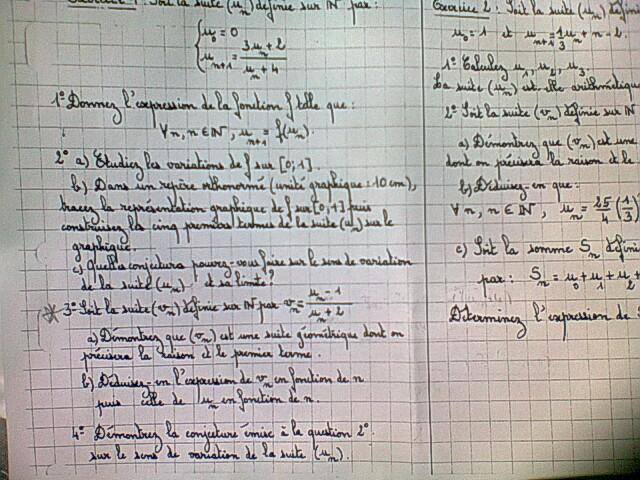 Exercice 1 : Soit la suite (u_n) définie sur ℕ par :
{ u_0 = 0
{ u_{n+1} = (3u_n + 2)/(u_n + 4)
1° Donnez l'expression de la fonction f telle que :
∀n, n ∈ ℕ, u_{n+1} = f(u_n).
2° a) Etudiez les variations de f sur [0;1].
b) Dans un repère orthonormé (unité graphique = 10 cm),
tracez la représentation graphique de f sur [0;1] puis
construisez les cinq premiers termes de la suite (u_n) sur le
graphique.
c) Quelle conjecture pouvez-vous faire sur le sens de variation
de la suite (u_n) et sa limite ?
* 3° Soit la suite (v_n) définie sur ℕ par v_n = (u_n - 1)/(u_n + 2)
a) Démontrez que (v_n) est une suite géométrique dont on
précisera la raison et le premier terme.
b) Déduisez-en l'expression de v_n en fonction de n
puis celle de u_n en fonction de n.
4° Démontrez la conjecture émise à la question 2°
sur le sens de variation de la suite (u_n).
Exercice 2 : Soit la suite (u_n) défini
u_0 = 1 et u_{n+1} = 1/3 u_n + n - 2.
1° Calculez u_1, u_2, u_3.
La suite (u_n) est-elle arithmétique
2° Soit la suite (v_n) définie sur ℕ
a) Démontrez que (v_n) est une
dont on précisera la raison et le
b) Déduisez-en que :
∀n, n ∈ ℕ, u_n = 25/4 (1/3)
c) Soit la somme S_n défini
par : S_n = u_0 + u_1 + u_2 +
Déterminez l'expression de S